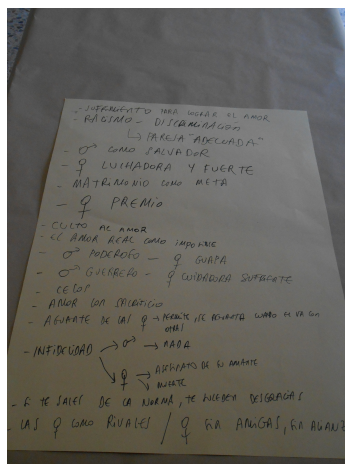 - SUFRIMIENTO PARA LOGRAR EL AMOR
- RACISMO - DISCRIMINACIÓN
↳ PAREJA "ADECUADA"
- ♂ COMO SALVADOR
- ♀ LUCHADORA Y FUERTE
- MATRIMONIO COMO META
- ♀ PREMIO
- CULTO AL AMOR
- EL AMOR REAL COMO IMPOSIBLE
- ♂ PODEROSO - ♀ GUAPA
- ♂ GUERRERO - ♀ CUIDADORA SUFRIENTE
- CELOS
- AMOR CON SACRIFICIO
- AGUANTE DE LAS ♀ → PERMITE, SE AGUANTA CUANDO EL VA CON OTRAS
- INFIDELIDAD → ♂ → NADA
↘ ♀ → ASESINATO DE SU AMANTE
↘ MUERTE
- SI TE SALES DE LA NORMA, TE SUCEDEN DESGRACIAS
- LAS ♀ COMO RIVALES / ♀ SIN AMIGAS, SIN